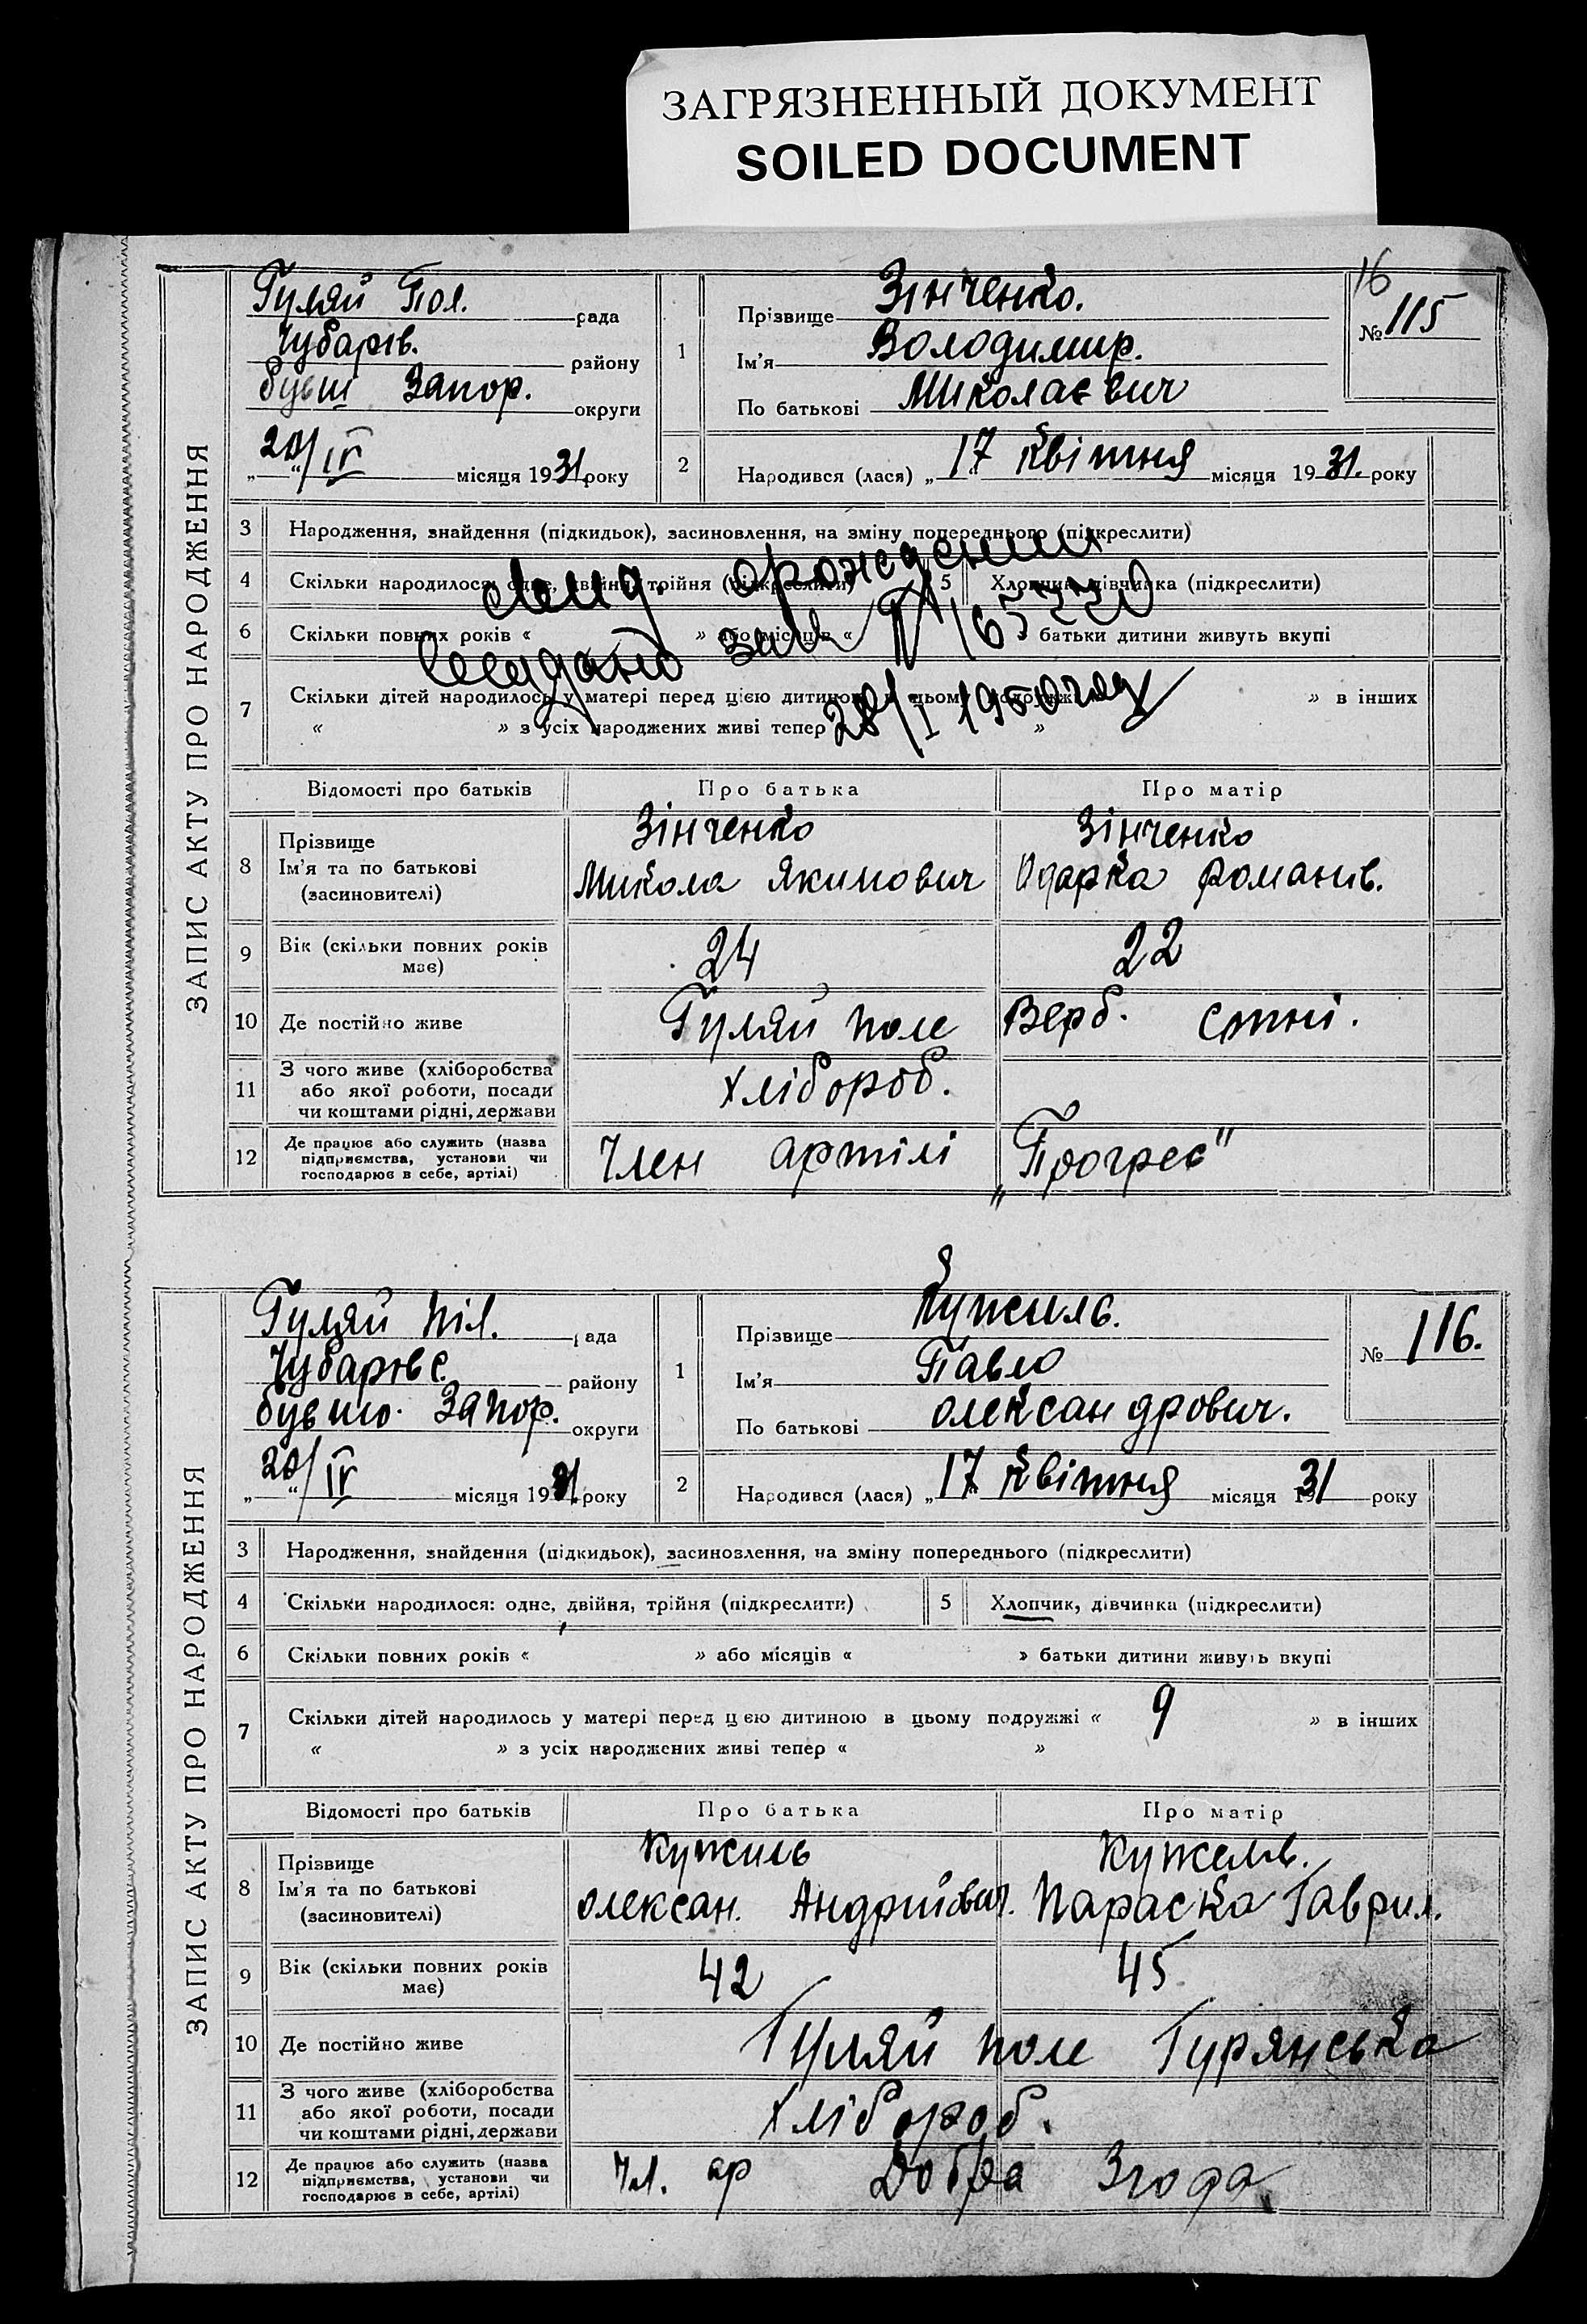 ЗАГРЯЗНЕННЫЙ ДОКУМЕНТ
SOILED DOCUMENT
16
ЗАПИС АКТУ ПРО НАРОДЖЕННЯ
Гуляй Пол. рада
Чубарів. району
бувш Запор. округи
„20“/IV місяця 1931 року
1
Прізвище Зінченко.
Ім'я Володимир.
По батькові Миколаєвич
№ 115
2
Народився (лася) „17 квітня місяця 1931. року
3 Народження, знайдення (підкидьок), засиновлення, на зміну попереднього (підкреслити)
4 Скільки народилося: одне, двійня, трійня (підкреслити) 5 Хлопчик, дівчинка (підкреслити)
6 Скільки повних років « » або місяців « » батьки дитини живуть вкупі
7 Скільки дітей народилось у матері перед цією дитиною в цьому подружжі « » в інших
« » з усіх народжених живі тепер « »
рождении
28/I 1950 году
Відомості про батьків Про батька Про матір
8 Прізвище Зінченко Зінченко
Ім'я та по батькові Микола Якимович Одарка Романів.
(засиновителі)
9 Вік (скільки повних років має) 24 22
10 Де постійно живе Гуляй поле Верб.
11 З чого живе (хліборобства або якої роботи, посади чи коштами рідні, держави хлібороб.
12 Де працює або служить (назва підприємства, установи чи господарює в себе, артілі) Член артілі „Прогрес"
ЗАПИС АКТУ ПРО НАРОДЖЕННЯ
Гуляй піл. рада
Чубарівс. району
бувшо. Запор. округи
„20“/IV місяця 1931 року
1
Прізвище Кужиль.
Ім'я Павло
По батькові Олександрович.
№ 116.
2
Народився (лася) „17 квітня місяця 1931 року
3 Народження, знайдення (підкидьок), засиновлення, на зміну попереднього (підкреслити)
4 Скільки народилося: одне, двійня, трійня (підкреслити) 5 Хлопчик, дівчинка (підкреслити)
6 Скільки повних років « » або місяців « » батьки дитини живуть вкупі
7 Скільки дітей народилось у матері перед цією дитиною в цьому подружжі « 9 » в інших
« » з усіх народжених живі тепер « »
Відомості про батьків Про батька Про матір
8 Прізвище Кужиль Кужель.
Ім'я та по батькові Олексан. Андрійович. Параска Гаврил.
(засиновителі)
9 Вік (скільки повних років має) 42 45
10 Де постійно живе Гуляй поле Гурянська
11 З чого живе (хліборобства або якої роботи, посади чи коштами рідні, держави Хлібороб.
12 Де працює або служить (назва підприємства, установи чи господарює в себе, артілі) Чл. ар Добра Згода